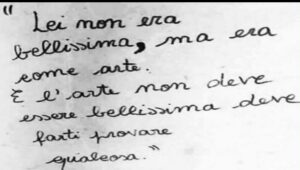 "Lei non era
bellissima, ma era
come arte.
E l'arte non deve
essere bellissima deve
farti provare
qualcosa."